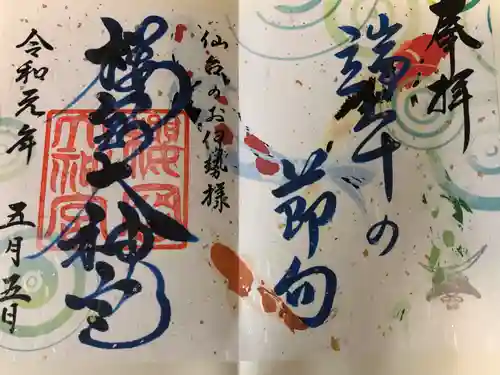 奉拝
端午の
節句
仙台のお伊勢様
櫻岡大神宮
櫻岡大神宮
令和元年
五月五日